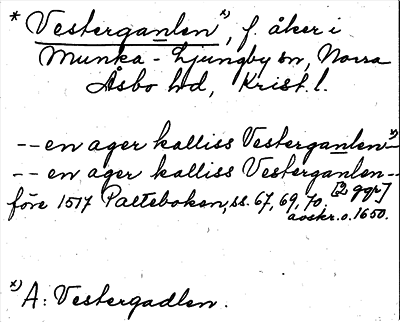 * Vesterganlen x), f. åker i
Munka-Ljungby sn, Norra
Åsbo hd, Krist. l.
-- en ager kalliss Vesterganlen x)
-- en ager kalliss Vesterganlen --
före 1517 Palteboken, ss. 67, 69, 70. [2 ggr]
avskr. o. 1650.
x) A: Vestergadlen.